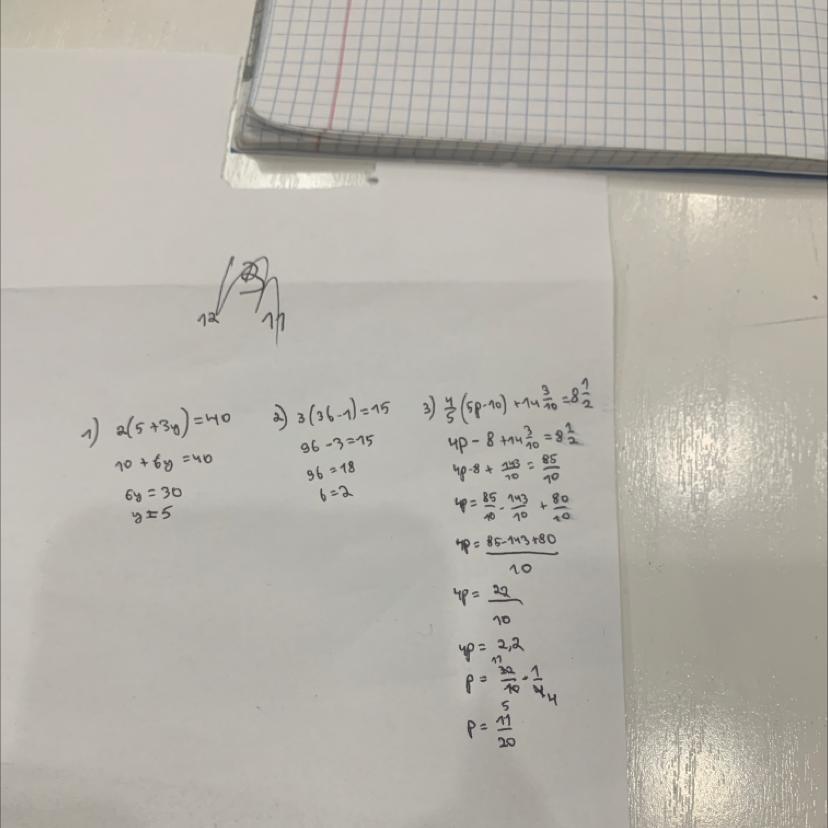 12
11
1) 2(5+3y)=40
10+6y=40
6y=30
y=5
2) 3(3b-1)=15
9b-3=15
9b=18
b=2
3) 4/5 (5p-10) + 14 3/10 = 8 1/2
4p-8+14 3/10 = 8 1/2
4p-8+ 143/10 = 85/10
4p= 85/10 - 143/10 + 80/10
4p= 85-143+80/10
4p= 22/10
4p= 2,2
p= 22/10 · 1/4
p= 11/20